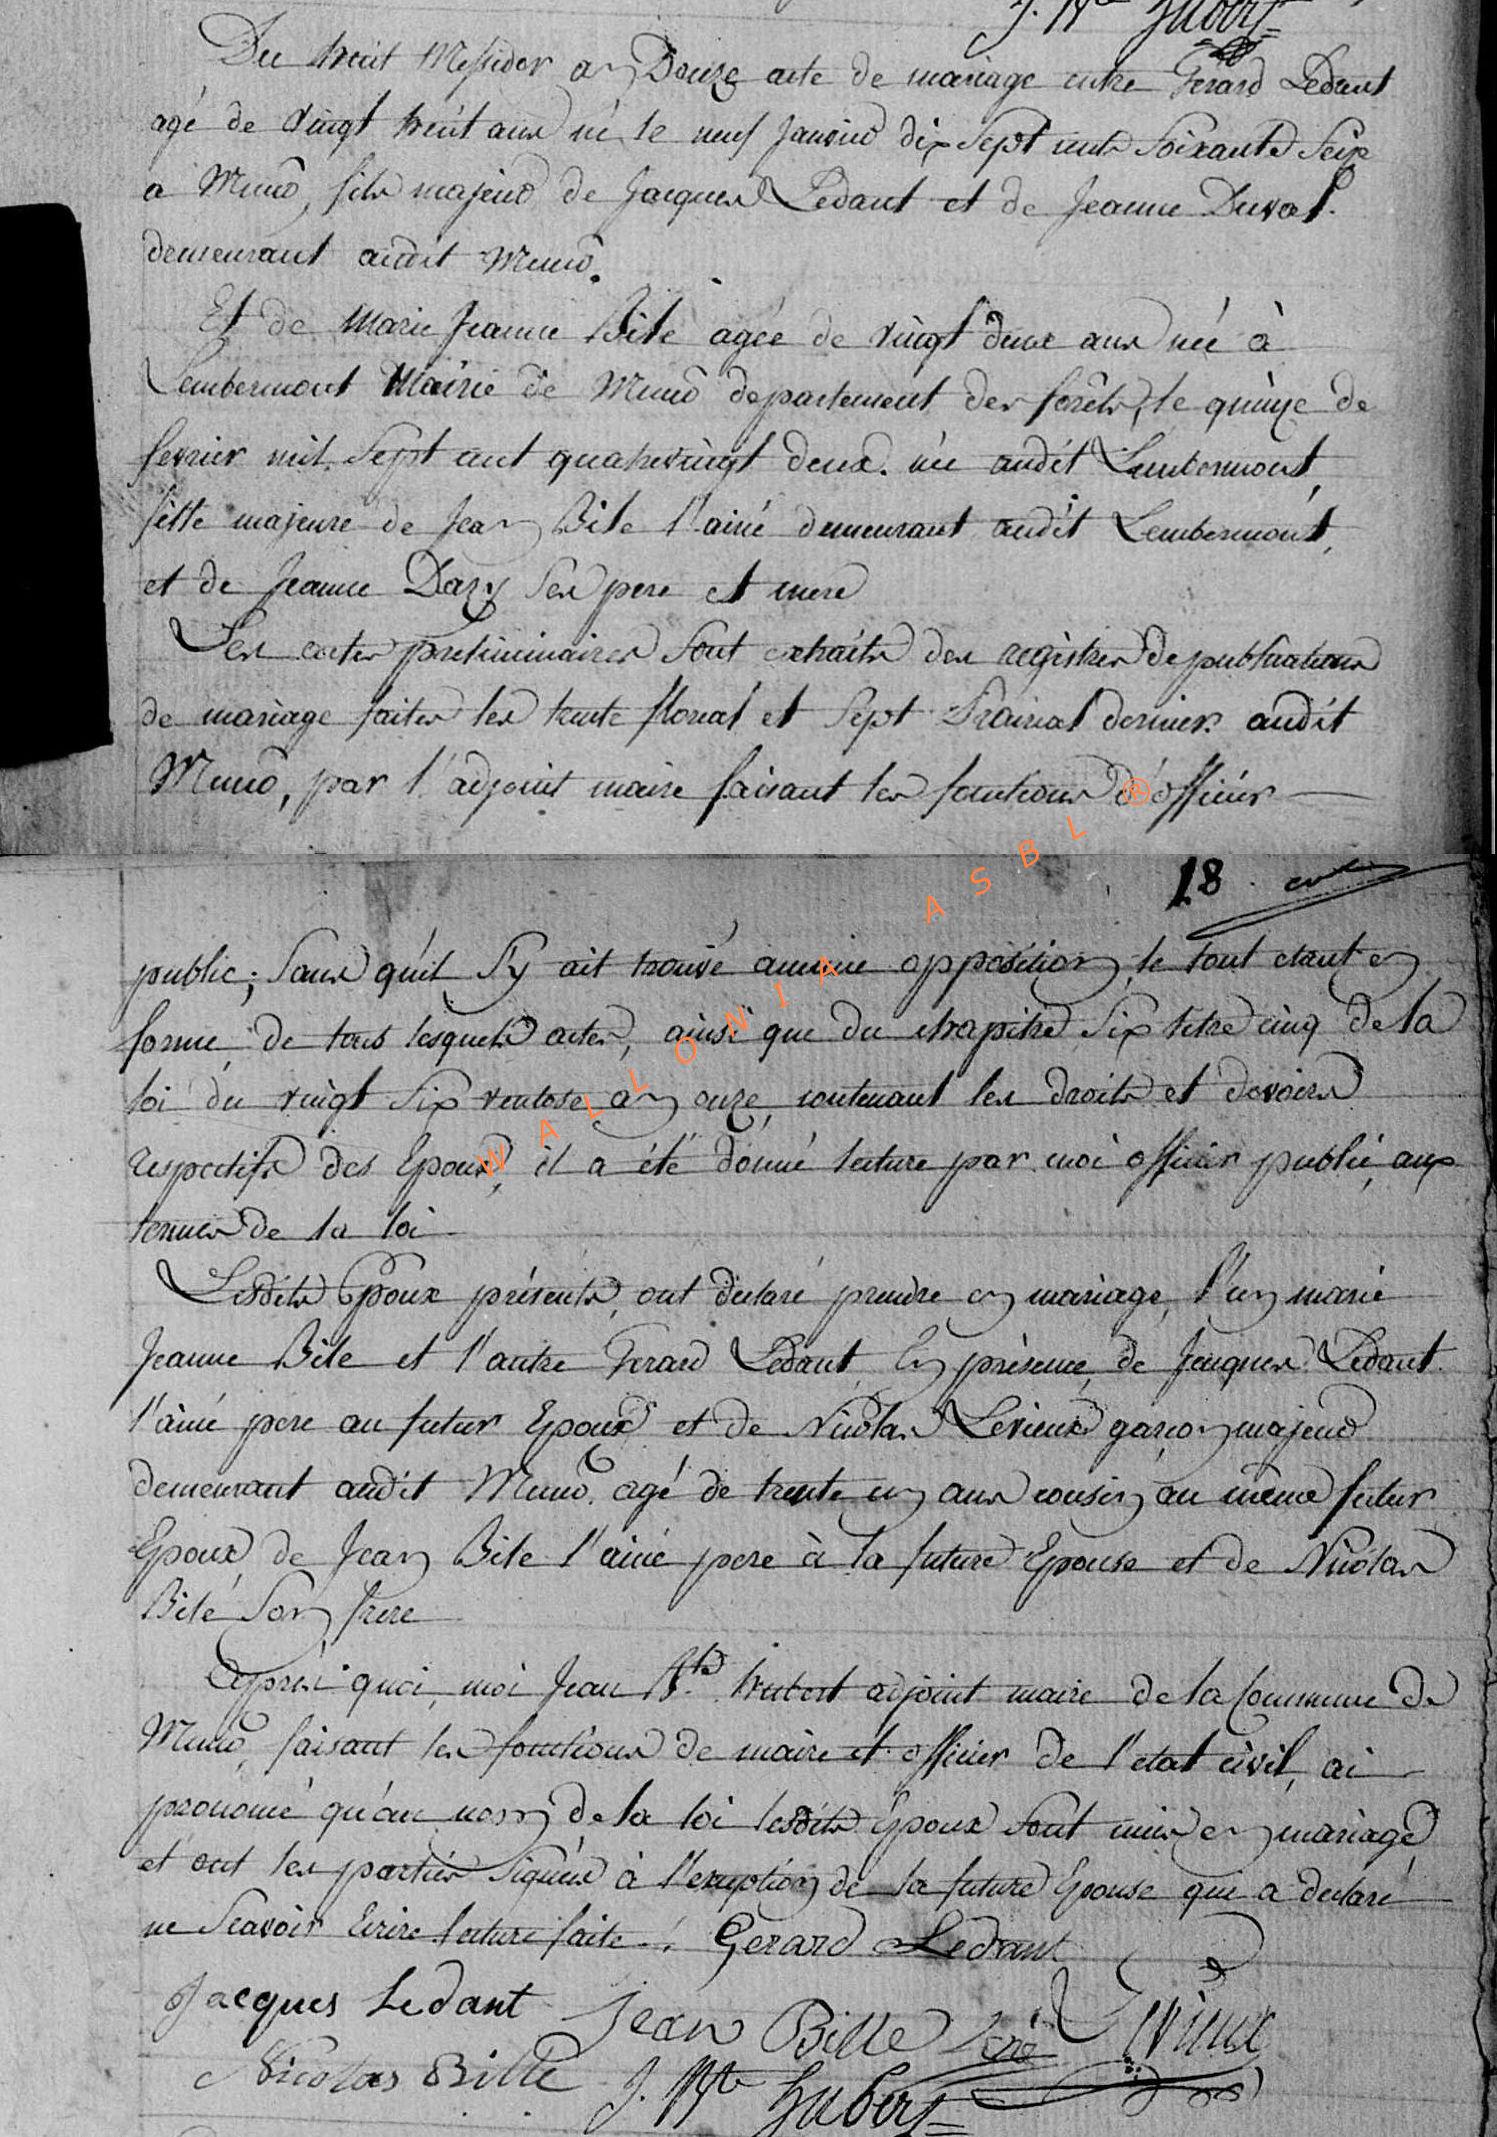 J. Bte Hubert
Du huit Messidor an Douze acte de mariage entre Gerard Ledant
agé de vingt huit ans né le neuf Janvier dix Sept cents Soixante Seize
a Muno, fils majeur de Jacques Ledant et de Jeanne Duval.
demeurant audit Muno.
Et de Marie Jeanne Bile agée de vingt deux ans née à
Lembermont Mairie de Muno departement des forêts, le quinze de
fevrier mil Sept cent quatrevingt deux. née audit Lembermont,
fille majeure de Jean Bile l'ainé demeurant audit Lembermont,
et de Jeanne Dazy Ses pere et mere
Les actes preliminaires Sont extraits des registres de publications
de mariage faites les trente floreal et Sept Prairial dernier audit
Muno, par l'adjoint maire faisant les fonctions d'officier
18
public; Sans qu'il S'y ait trouvé aucune opposition, le tout etant en
forme, de tous lesquels actes, ainsi que du chapitre Six titre cinq de la
loi du vingt Six ventose an onze, contenant les droits et devoirs
respectifs des Epoux, il a été donné lecture par moi officier public, aux
termes de la loi
Lesdits Epoux présents, ont declaré prendre en mariage, l'un marie
Jeanne Bile et l'autre Gerard Ledant, En présence, de Jacques Ledant
l'ainé pere au futur Epoux et de Nicolas Levieux garçon majeur
demeurant audit Muno, agé de trente un ans cousin au même futur
Epoux, de Jean Bile l'ainé pere à la future Epouse et de Nicolas
Bilé Son frere
Après quoi, moi Jean Bte hubert adjoint maire de la Commune de
Muno, faisant les fonctions de maire et officier de l'etat civil, ai
prononcé qu'au nom de la loi lesdits Epoux Sont unis en mariage
et ont les parties Signées à l'exception de la future Epouse qui a declaré
ne Scavoir Ecrire lecture faite. Gerard Ledant
Jacques Ledant Jean Bille Levieux
Nicolas Bille J. Bte Hubert
WALLONIA ASBL ®